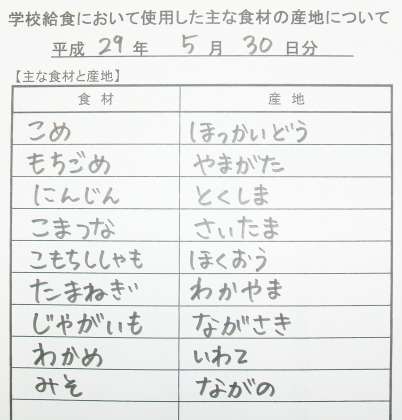 学校給食において使用した主な食材の産地について
平成 29 年 5 月 30 日分
【主な食材と産地】
食材 産地
こめ ほっかいどう
もちごめ やまがた
にんじん とくしま
こまつな さいたま
こもちししゃも ほくおう
たまねぎ わかやま
じゃがいも ながさき
わかめ いわて
みそ ながの